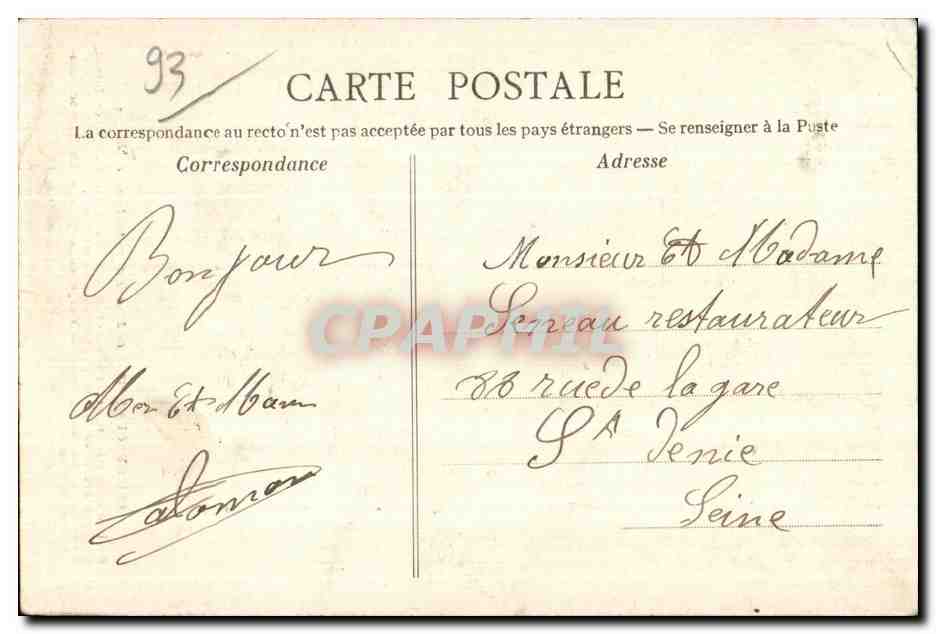 93
CARTE POSTALE
La correspondance au recto n'est pas acceptée par tous les pays étrangers — Se renseigner à la Poste
Correspondance
Bonjour
Adresse
Monsieur Et Madame
Seneau restaurateur
rue de la gare
St Denie
Seine
CPAPHIL